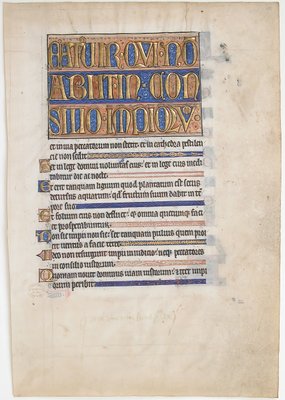 BATVIR QVI NO
ABIIT IN CON
SILIO IMPIORV
et in via peccatorum non stetit: et in cathedra pestilen
tie non sedit.
Set in lege domini voluntas eius: et in lege eius medi
tabitur die ac nocte.
Et erit tanquam lignum quod plantatum est secus
decursus aquarum: quod fructum suum dabit in te
pore suo.
Et folium eius non defluet: et omnia quecumque faci
et prosperabuntur.
Non sic impii non sic: set tanquam pulvis quem proi
cit ventus a facie terre.
Ideo non resurgunt impii in iudicio: neque peccatores
in consilio iustorum.
Quoniam novit dominus viam iustorum: et iter impi
orum peribit.